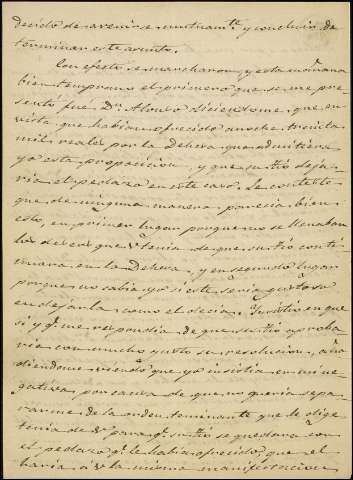 decirlo de avenirse mutuamte. y concluir de
terminar este asunto.
Con efecto se marcharon, y esta mañana
bien temprano el primero que se me pre
sentó fue Dn. Alonso diciendome, que en
vista que habian ofrecido anoche treinta
mil reales por la Dehesa que admitiera
yo esta proposicion, y que su tio deja
ria el pedazo en este caso. Le contesté
que de ninguna manera parecia bien
esto, en primer lugar porque no se llenaban
los deseos que V. tenia de que su tio conti
nuara en la Dehesa, y en segundo lugar
porque no sabia yo si este seria gustoso
en dejarla como el decia. Insistió en que
si y qe. me respondia de que su tio aproba
ria con mucho gusto su resolucion, aña
diendome viendo que yo insistia en mi ne
gativa, por causa de que no queria sepa
rarme de la orden terminante que le dige
tenia de V. para qe. su tio se quedara con
el pedazo qe. le habia ofrecido, que el
haria á V. la misma manifestacion